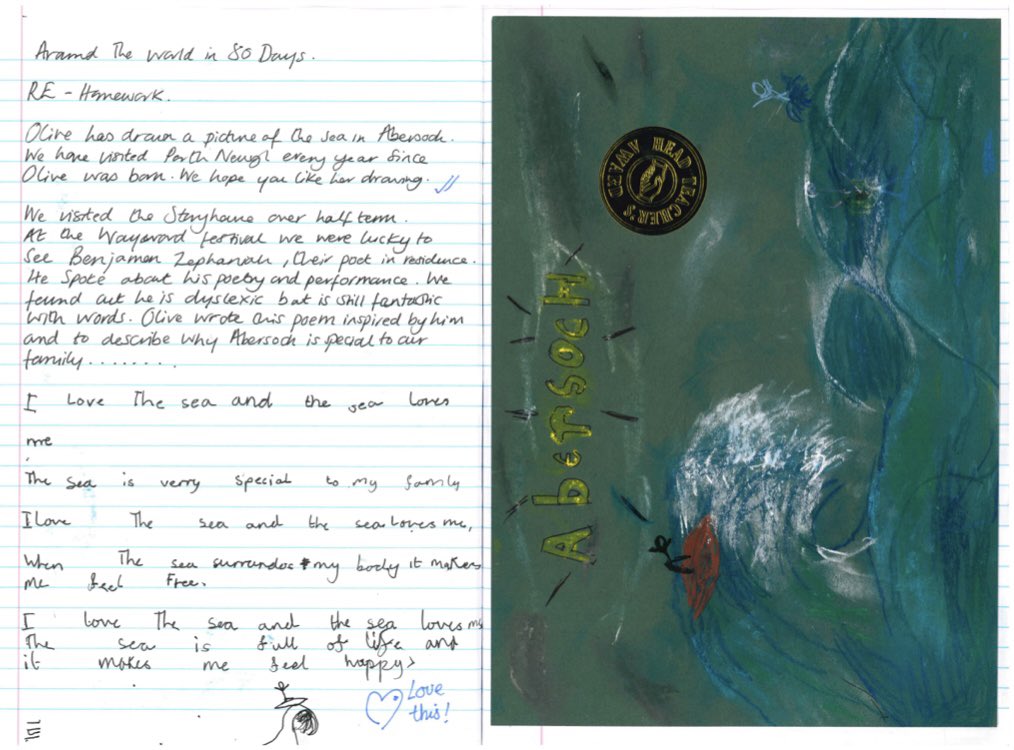 Around The world in 80 Days.
RE - Homework.
Olive has drawn a picture of the sea in Abersoch.
We have visited Porth Neugl every year since
Olive was born. We hope you like her drawing.
We visited the Storyhouse over half term.
At the Wayword festival we were lucky to
see Benjamen Zephaniah, their poet in residence.
He spoke about his poetry and performance. We
found out he is dyslexic but is still fantastic
with words. Olive wrote this poem inspired by him
and to describe why Abersoch is special to our
family........
I love The sea and the sea loves
me
The sea is verry special to my family
I love The sea and the sea loves me,
When The sea surrundos my body it makes
me feel Free.
I love The sea and the sea loves me
The sea is full of life and
it makes me feel happy
Love
this!
HEAD TEACHER'S AWARD
AbeTSOCH